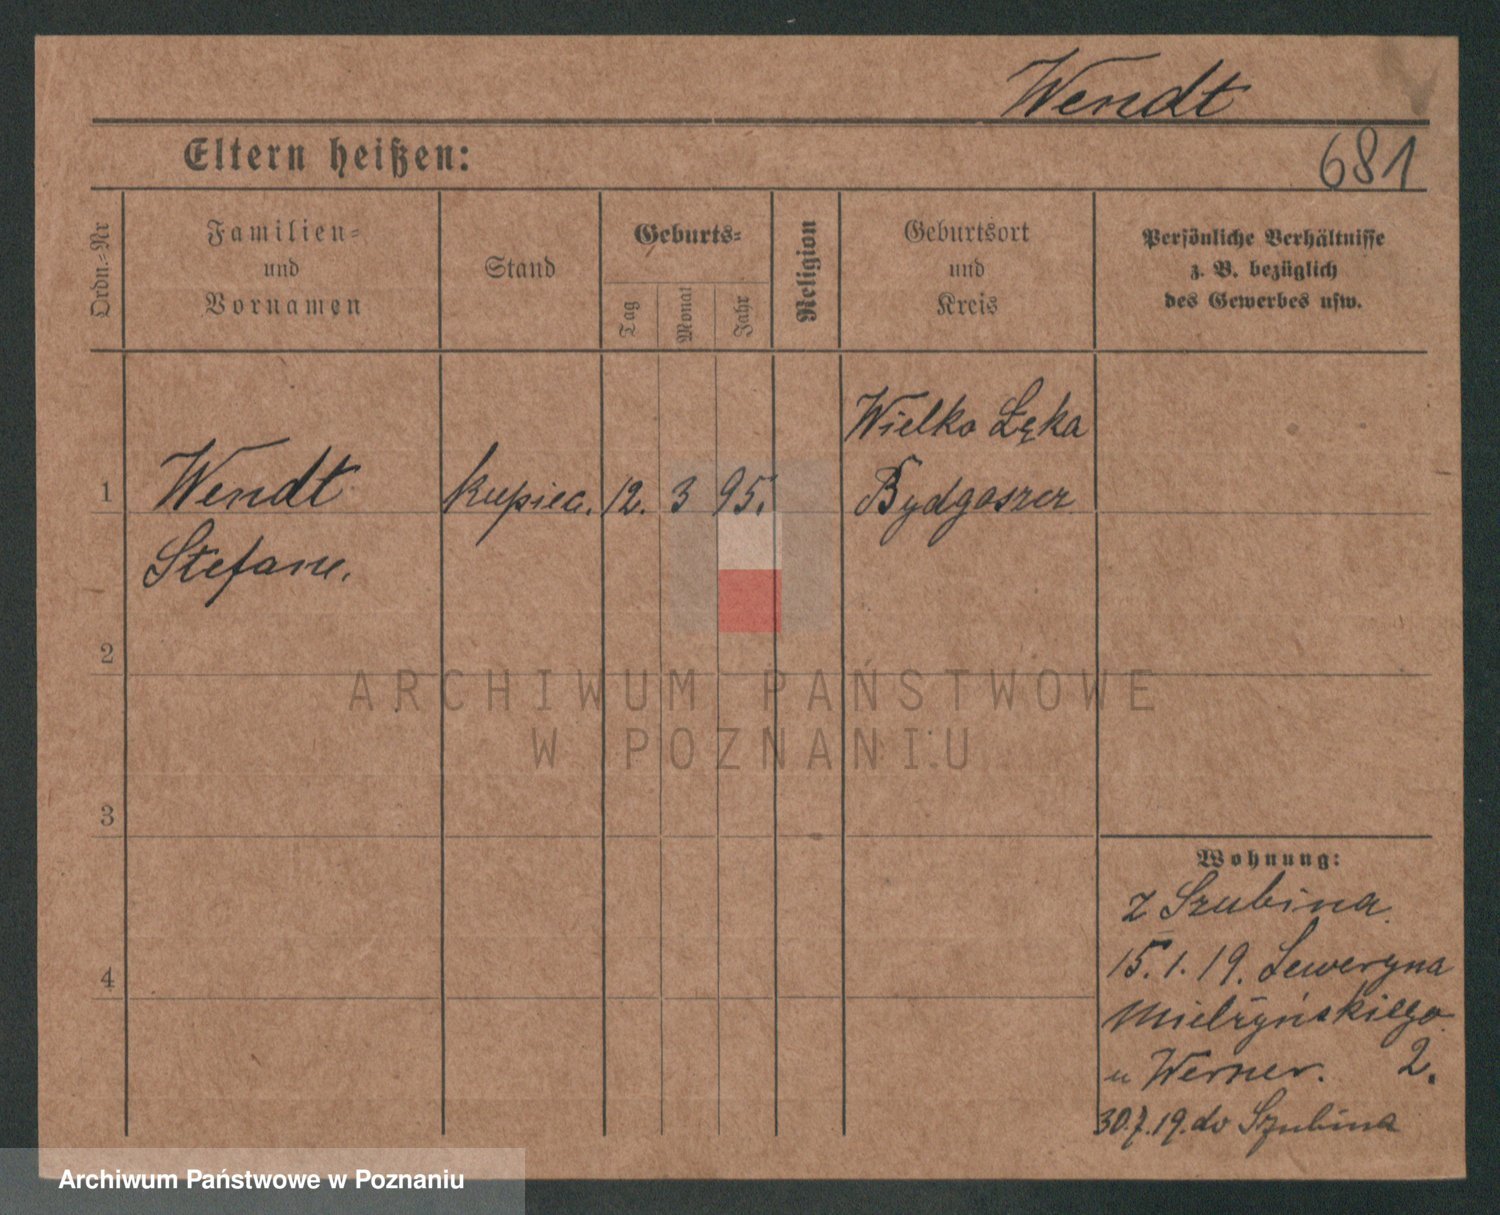 Wendt
Eltern heißen:
681
Ordn.-Nr
Familien- und Vornamen
Stand
Geburts-
Tag
Monat
Jahr
Religion
Geburtsort und Kreis
Persönliche Verhältnisse
z. B. bezüglich
des Gewerbes usw.
Wielko Łęka
1 Wendt kupiec. 12. 3 95. Bydgoszcz
Stefan.
2
ARCHIWUM PAŃSTWOWE
W POZNANIU
3
Wohnung:
z Szubina.
15.1.19. Seweryna
4
Mielżyńskiego
u Werner. 2.
30.7.19. do Szubina
Archiwum Państwowe w Poznaniu